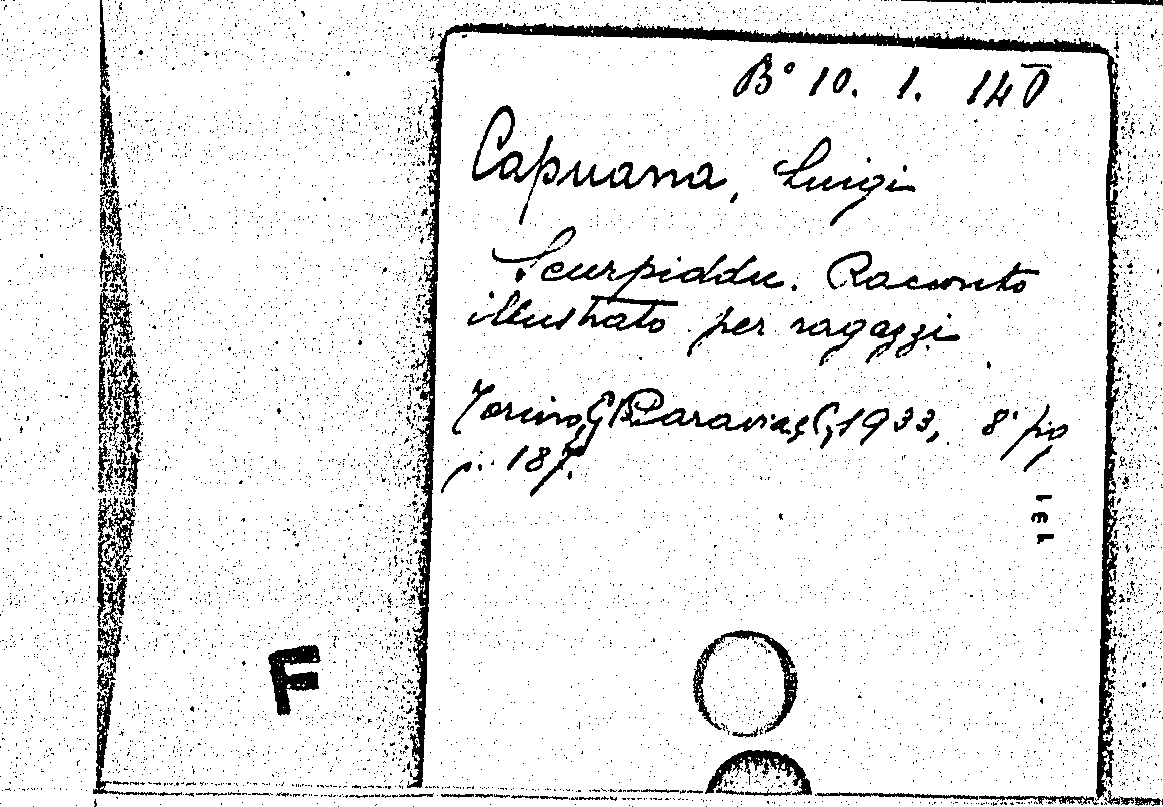 B° 10. 1. 140
Capuana, Luigi
Scurpiddu. Racconto
illustrato per ragazzi
Torino, G B Paravia e C, 1933, 8° fig
p. 187.
131
F